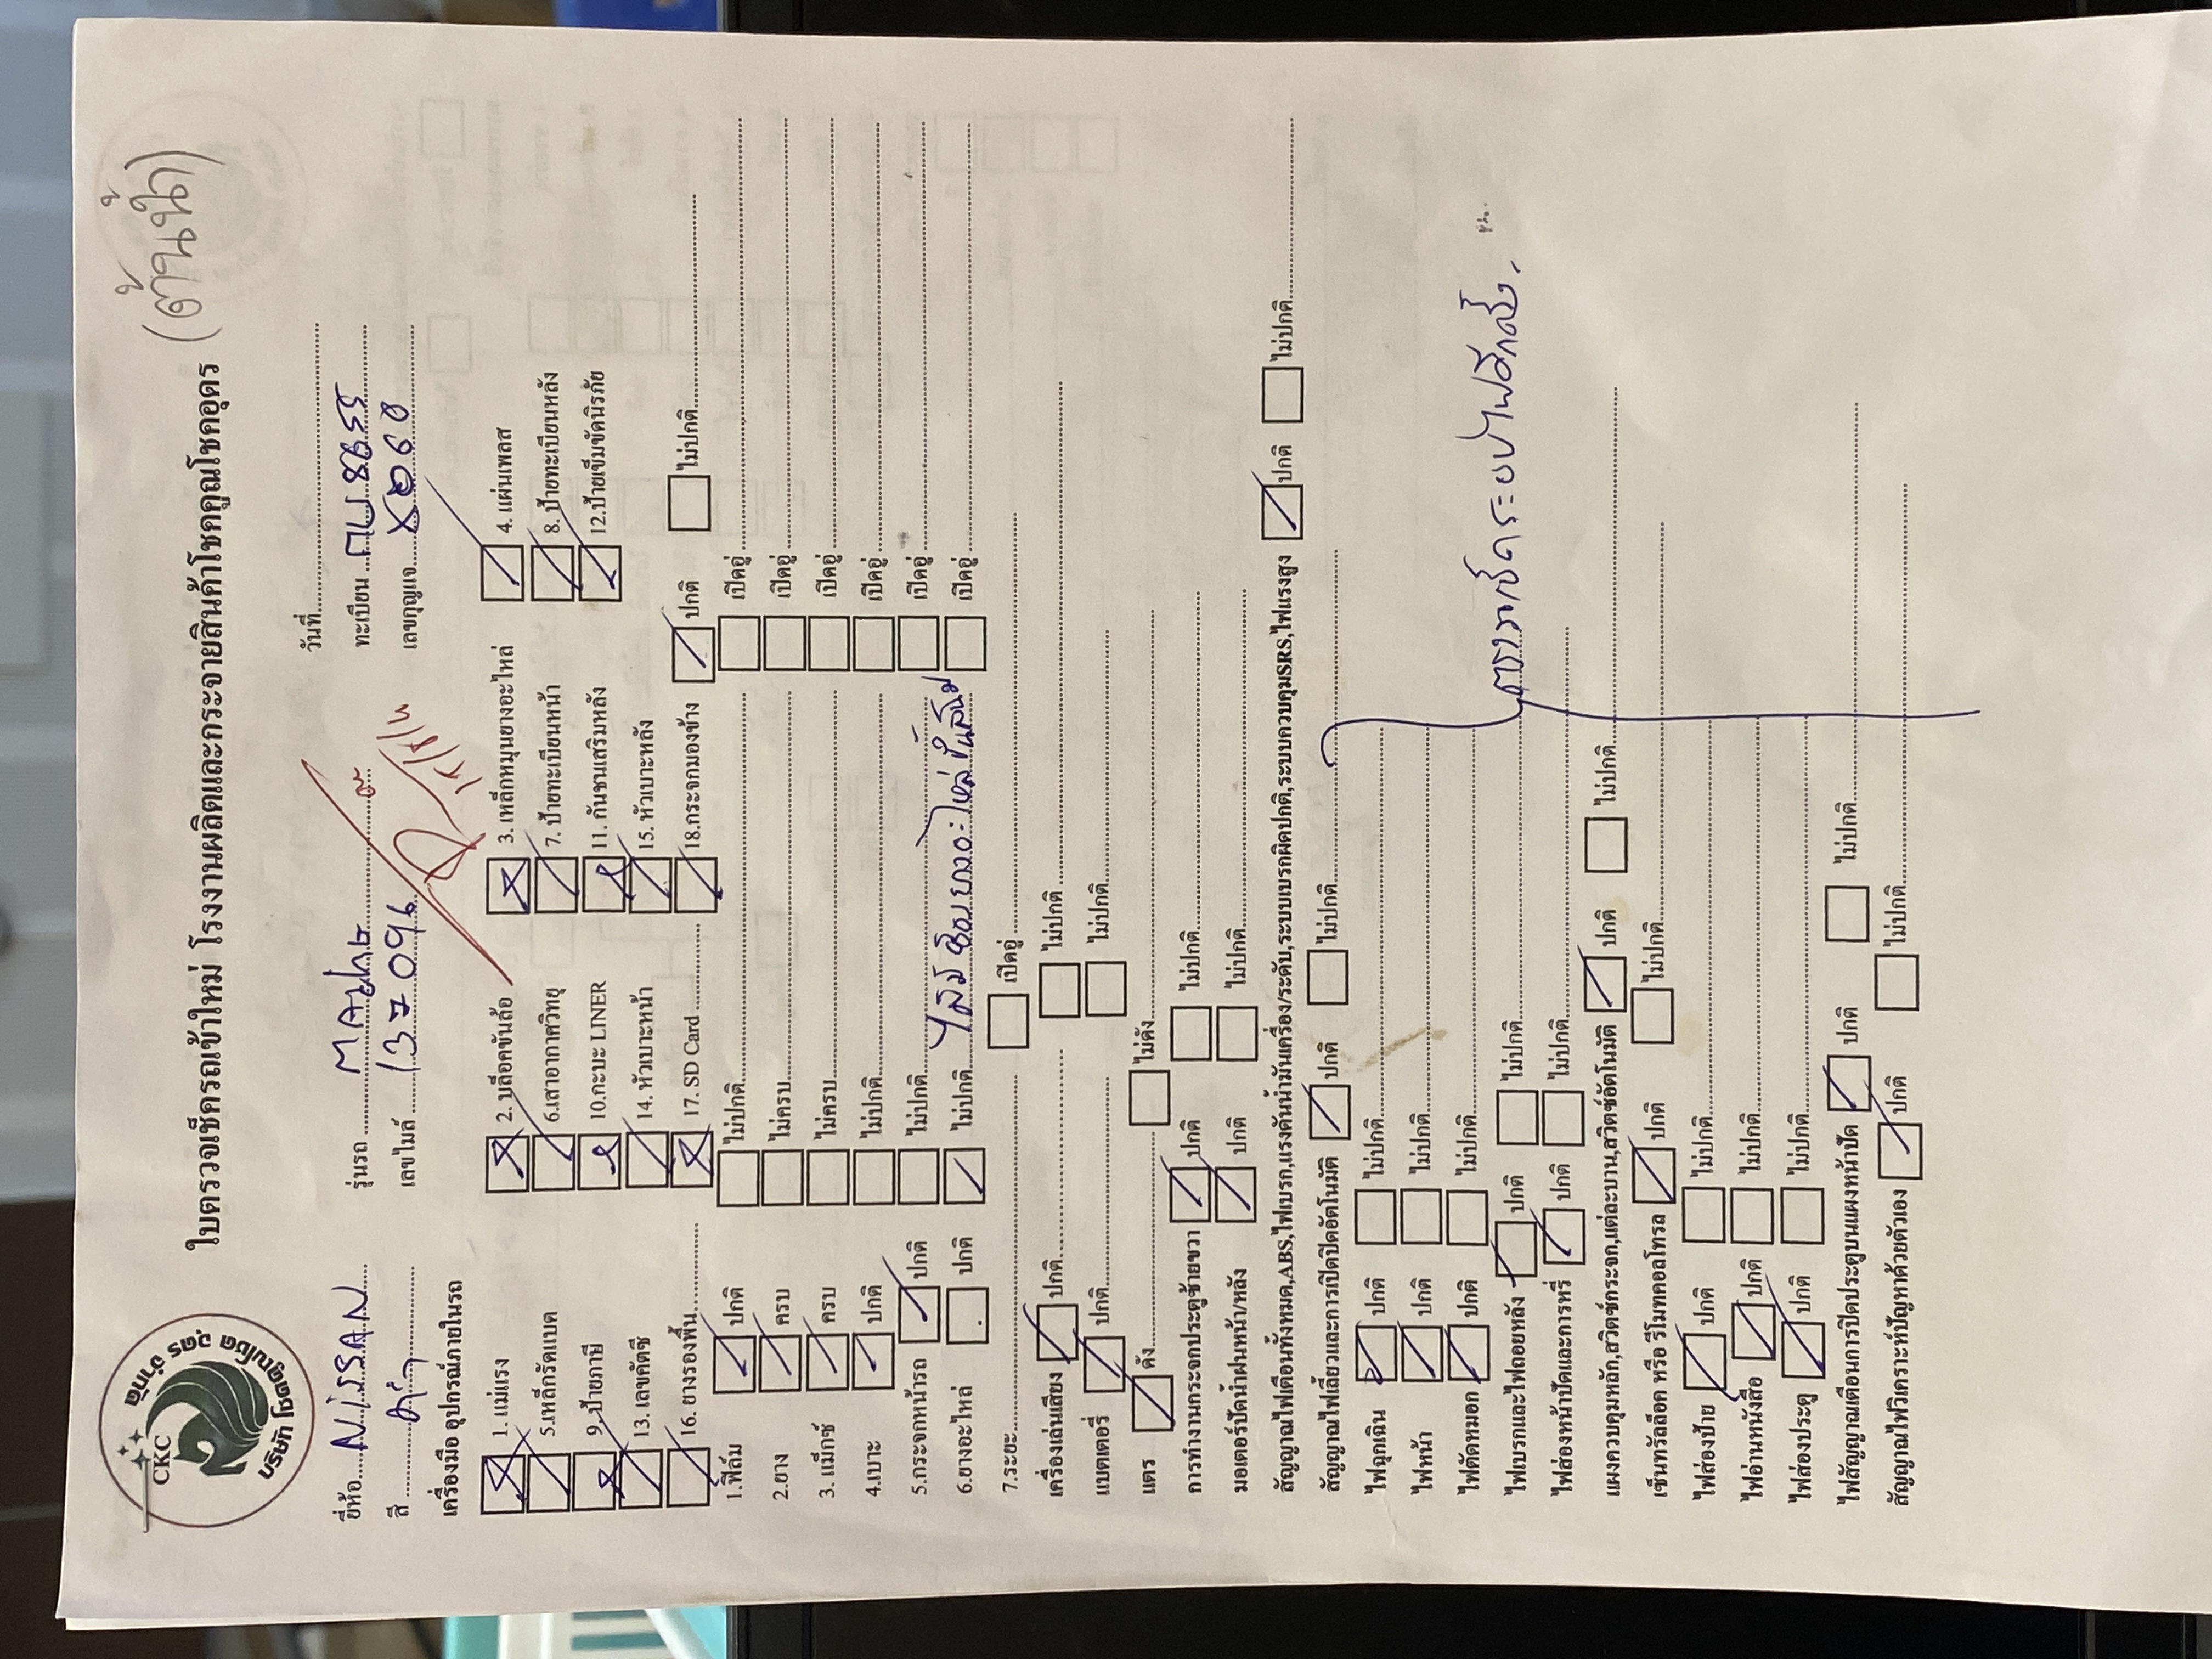 (ด้านน้ำ)
CKC
บริษัท โชคคูณโชค อุดร จำกัด
ใบตรวจเช็ครถเข้าใหม่ โรงงานผลิตและกระจายสินค้าโชคคูณโชคอุดร
วันที่
ยี่ห้อ NISSAN รุ่นรถ ทะเบียน
สี ดำ เลขไมล์ 137096 เลขกุญแจ X060
เครื่องมือ อุปกรณ์ภายในรถ
1. แม่แรง 2. บล็อคขันล้อ 3. เหล็กหมุนยางอะไหล่ 4. แผ่นเพลส
5.เหล็กรัดแบต 6.เสาอากาศวิทยุ 7. ป้ายทะเบียนหน้า 8. ป้ายทะเบียนหลัง
9. ป้ายภาษี 10.กะบะ LINER 11. กันชนเสริมหลัง 12.ป้ายเข็มขัดนิรภัย
13. เลขคัตซี 14. หัวเบาะหน้า 15. หัวเบาะหลัง
16. ยางรองพื้น 17. SD Card 18.กระจกมองข้าง ปกติ ไม่ปกติ
1.ฟิล์ม ปกติ ไม่ปกติ เปิดอู่
2.ยาง ครบ ไม่ครบ เปิดอู่
3. แม็กซ์ ครบ ไม่ครบ เปิดอู่
4.เบาะ ปกติ ไม่ปกติ เปิดอู่
5.กระจกหน้ารถ ปกติ ไม่ปกติ เปิดอู่
6.ยางอะไหล่ ปกติ ไม่ปกติ เปิดอู่
7.ระยะ เปิดอู่
เครื่องเล่นเสียง ปกติ ไม่ปกติ
แบตเตอรี่ ปกติ ไม่ปกติ
แตร ดัง ไม่ดัง
การทำงานกระจกประตูซ้ายขวา ปกติ ไม่ปกติ
มอเตอร์ปัดน้ำฝนหน้า/หลัง ปกติ ไม่ปกติ
สัญญาณไฟเตือนทั้งหมด,ABS,ไฟเบรก,แรงดันน้ำมันเครื่อง/ระดับ,ระบบเบรกผิดปกติ,ระบบควบคุมSRS,ไฟแรงสูง ปกติ ไม่ปกติ
สัญญาณไฟเลี้ยวและการเปิดปิดอัตโนมัติ ปกติ ไม่ปกติ
ไฟฉุกเฉิน ปกติ ไม่ปกติ
ไฟหน้า ปกติ ไม่ปกติ
ไฟตัดหมอก ปกติ ไม่ปกติ
ไฟเบรกและไฟถอยหลัง ปกติ ไม่ปกติ
ไฟส่องหน้าปัดและการหรี่ ปกติ ไม่ปกติ
แผงควบคุมหลัก,สวิตช์กระจก,แต่ละบาน,สวิตช์อัตโนมัติ ปกติ ไม่ปกติ
เซ็นทรัลล็อค หรือ รีโมทคอลโทรล ปกติ ไม่ปกติ
ไฟส่องป้าย ปกติ ไม่ปกติ
ไฟอ่านหนังสือ ปกติ ไม่ปกติ
ไฟส่องประตู ปกติ ไม่ปกติ
ไฟสัญญาณเตือนการปิดประตูบนแผงหน้าปัด ปกติ ไม่ปกติ
สัญญาณไฟวิเคราะห์ปัญหาด้วยตัวเอง ปกติ ไม่ปกติ